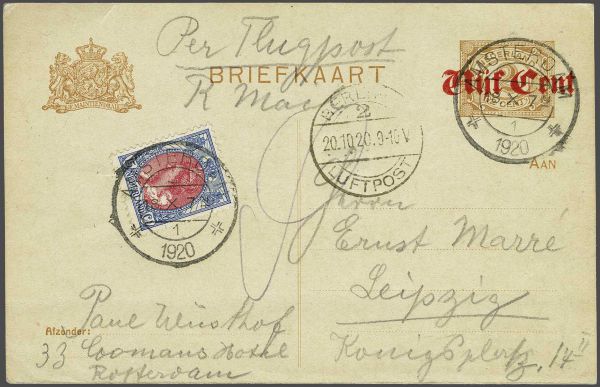 Per Flugpost
BRIEFKAART
R Mac
Vijf Cent
AMSTERDAM
1
1920
BERLIN
2
20.10.20.9-10V
LUFTPOST
AAN
AMSTERDAM
1
1920
Herrn
Ernst Marré
Leipzig
Königsplatz, 14 II
Afzender:
Paul Wüsthof
33 Coomans Hotel
Rotterdam